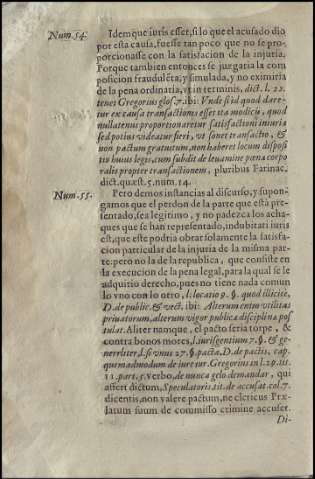 Num.54.
Idem que iuris esset, si lo que el acusado dio
por esta causa, fuesse tan poco que no se pro-
porcionasse con la satisfacion de la injuria.
Porque tambien entonces se juzgaria la com
posicion fraudulẽta, y simulada, y no eximiria
de la pena ordinaria, vt in terminis, dict. l. 22.
tenet Gregorius glos. 7. ibi: Vnde si id quod dare-
tur ex causa transactionis esset ita modicũ, quod
nullatenus proportionaretur satisfactioni iniuriæ
sed potius videatur fieri, vt sonet transactio, &
non pactum gratuitum, non haberet locum disposi
tio huius legis, cum subdit de leuamine pena corpo
ralis propter transactionem, pluribus Farinac.
dict. quæst. 5. num. 14.
Num.55.
Pero demos instancias al discurso, y supon-
gamos que el perdon de la parte que està pre-
sentado, sea legitimo, y no padezca los acha-
ques que se han representado, indubitati iuris
est, que este podria obrar solamente la satisfa-
cion particular de la injuria de la misma par-
te: pero no la de la republica, que consiste en
la execucion de la pena legal, para la qual se le
adquirio derecho, pues no tiene nada comun
lo vno con lo otro, l. locatio 9. §. quod illicitè,
D. de public. & vect. ibi: Alterum enim vtilitas
priuatorum, alterum vigor publicæ disciplinæ pos
tulat. Aliter namque, el pacto seria torpe, &
contra bonos mores, l. iurisgentium 7. §. & ge-
neraliter, l. si vnus 27. §. pacta, D. de pactis, cap.
quemadmodum de iure iur. Gregorius in l. 29. tit.
11. part. 5. verbo, de nunca gelo demandar, qui
affert dictum, Speculatoris tit. de accusat. col. 7.
dicentis, non valere pactum, ne clericus Præ-
latum suum de commisso crimine accuset.
Di-